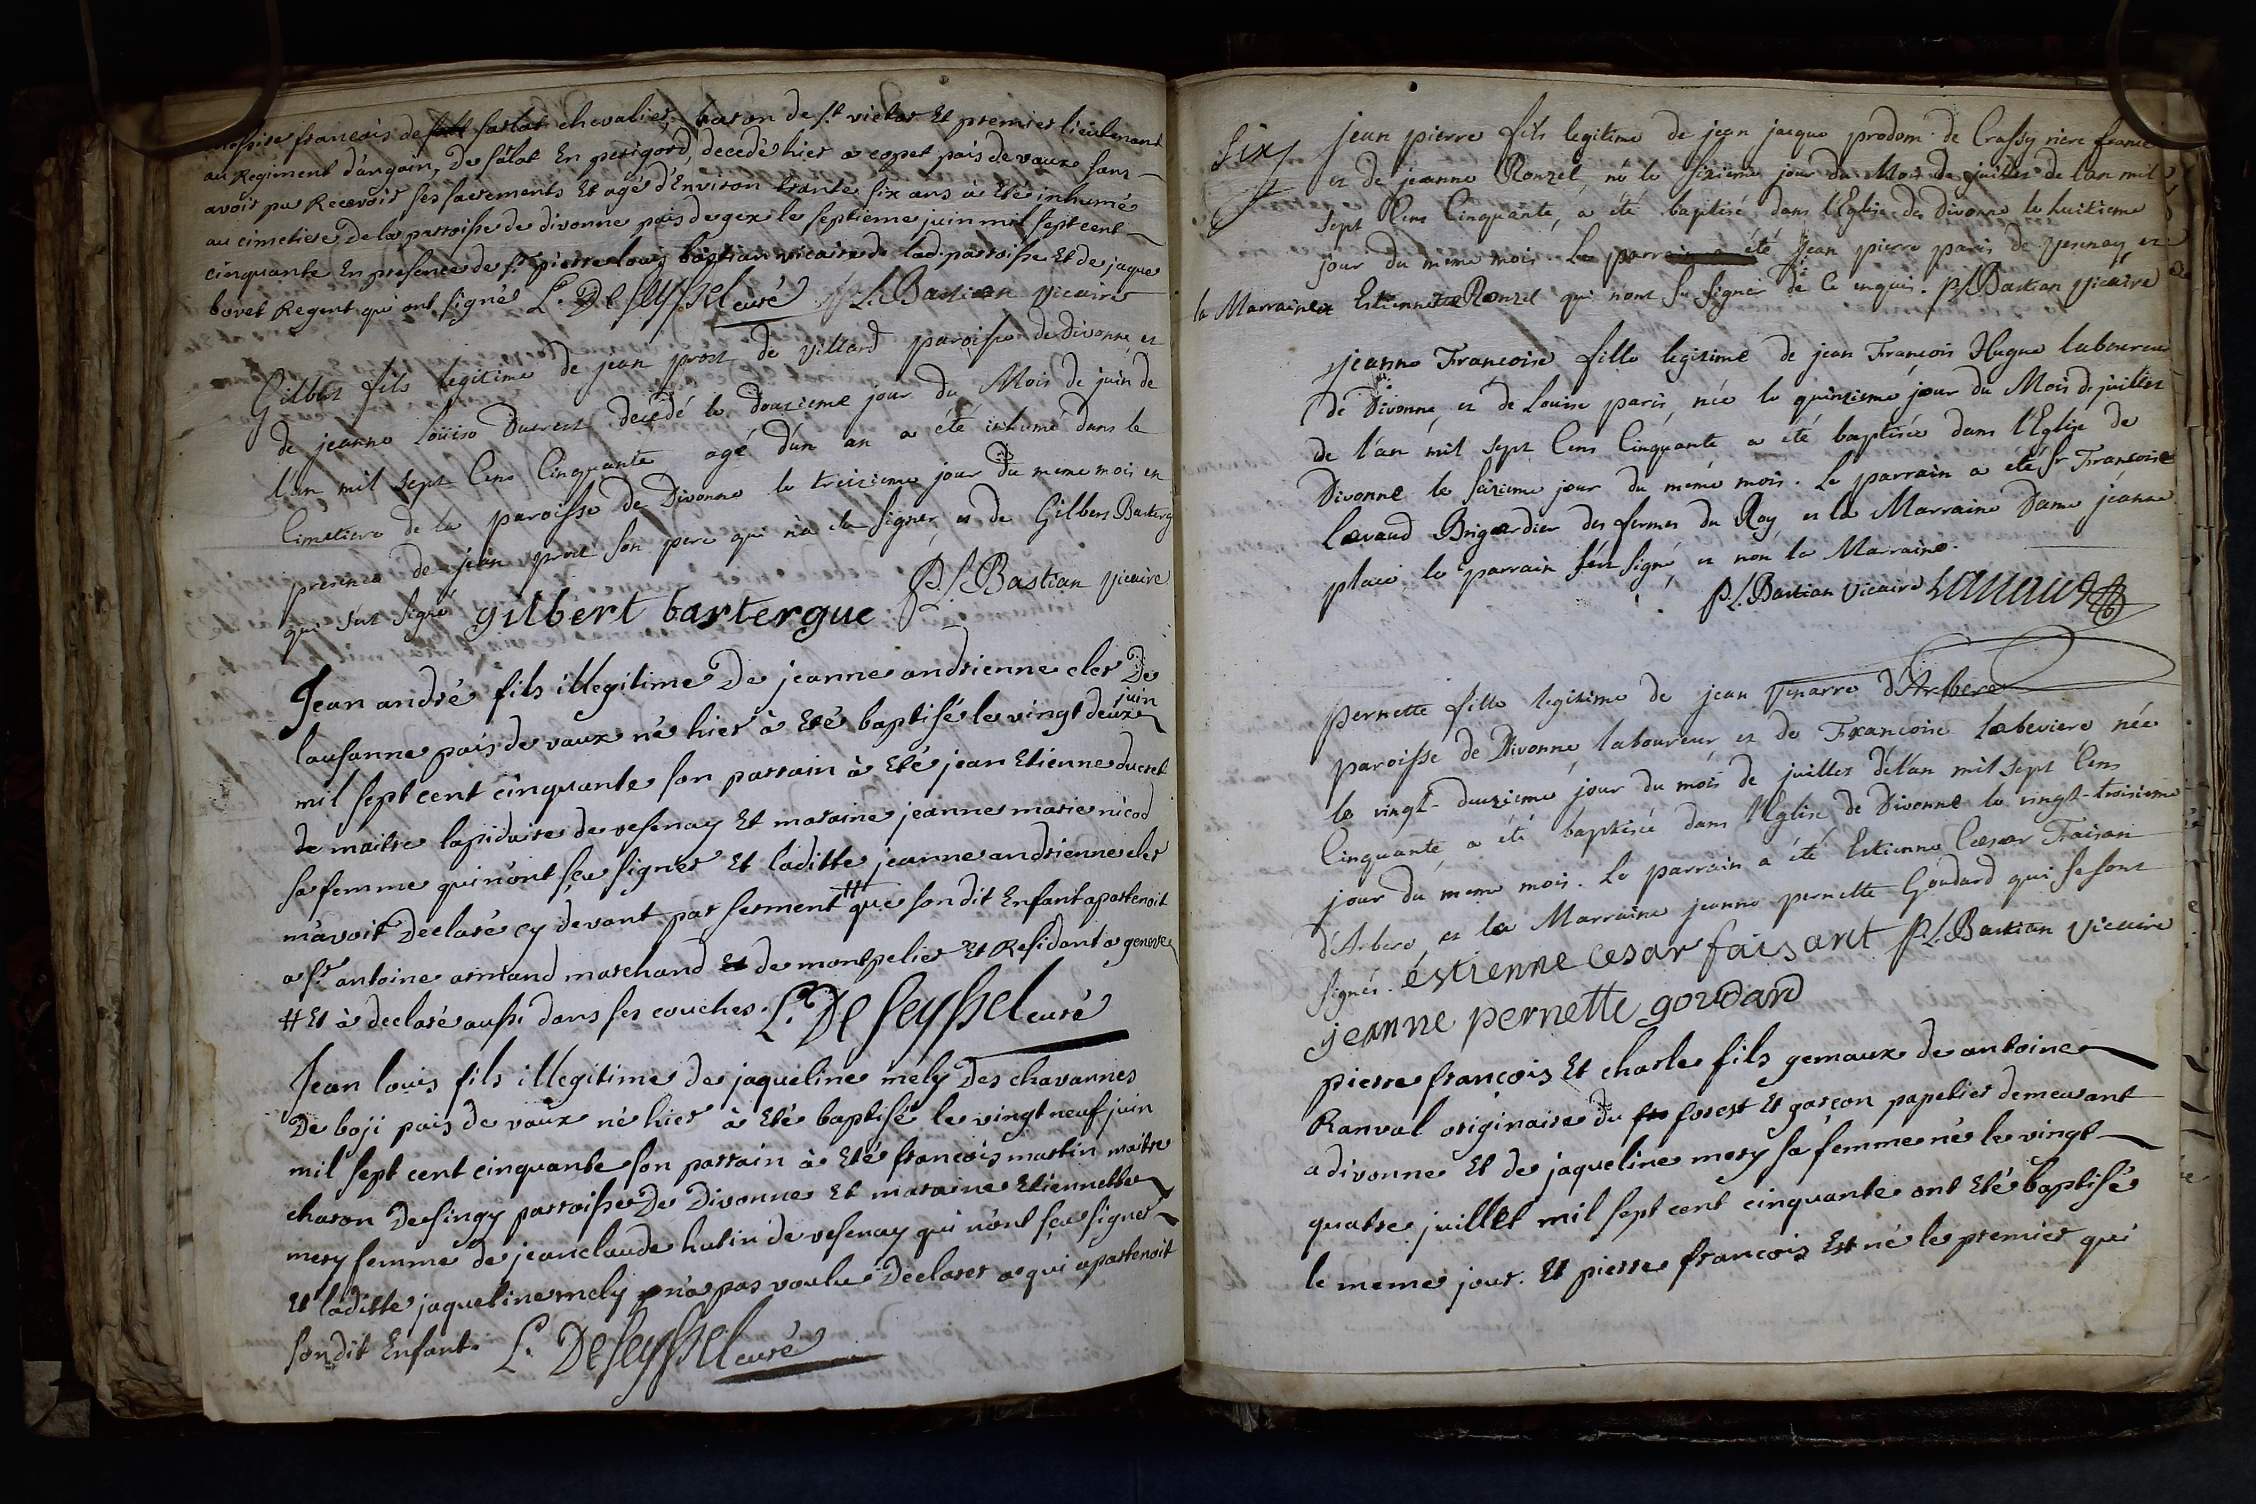 françois de sarlat chevalier, baron de st victor Et premier lieutenant
au Regiment d'angain, De sâlat En perigord, decedé hier a copet païs de vaux sans
avoir pu Recevoir ses sacrements Et agé d'Environ trante six ans à Eté inhumé
au cimetiere de la parroisse de divonne païs de gex le septieme juin mil sept cent
cinquante En presence de sr pierre louis bastian vicaire de lad. parroisse Et de jaque
bovet Regent qui ont signé L. De Seyssel curé P. L. Bastian Vicaire
Gilbert fils legitime de jean prost de villard paroisse de Divonne, et
de jeanne Loüise Ducrest decedé le douzieme jour du Mois de juin de
l'an mil sept Cens Cinquante agé d'un an a été inhumé dans le
Cimetiere de la paroisse de Divonne le treizieme jour du meme mois en
presence de jean prost son pere qui n'a su signer, et de Gilbert Barterg
qui s'est signé gilbert bartergue P. L. Bastian Vicaire
Jean andré fils illegitime De jeanne andrienne cler De
lausanne païs de vaux né hier à Eté baptisé le vingt deux juin
mil sept cent cinquante son parrain à Eté jean Etienne ducret
de maitre lapidaire de vesenay Et maraine jeanne marie nicod
sa femme qui n'ont sçu signer Et laditte jeanne andrienne cler
m'avoit Declaré cy devant par serment # que son dit Enfant apartenoit
a sr antoine armand marchand de montpelier Et Residant a geneve
# Et à declaré aussi dans ses couches. L. De Seyssel curé
Jean louis fils illegitime de jaqueline mely Des chavannes
De boji païs de vaux né hier à Eté baptisé le vingt neuf juin
mil sept cent cinquante son parrain à Eté françois martin maitre
charon De singy parroisse De Divonne Et maraine Etiennette
mery femme de jean claude hutin de vesenay qui n'ont sçu signer
Et laditte jaqueline mely n'a pas voulu Declarer a qui apartenoit
son dit Enfant. L. De Seyssel curé
Six jean pierre fils legitime de jean jacque prodom de Crassy riere france
et de jeanne Ronzel, né le sixieme jour du Mois de juillet de l'an mil
sept Cens Cinquante, a été baptisé dans l'Eglise de Divonne le huitieme
jour du meme mois. Le parrain a été jean pierre paris de vesenay et
la Marraine Estiennette Ronzel qui n'ont su signer de ce enquis. P. L. Bastian Vicaire
jeanne Francoise fille legitime de jean François Hugue laboureur
de Divonne, et de Louise paris, née le quinzieme jour du Mois de juillet
de l'an mil sept Cens Cinquante a été baptisée dans l'Eglise de
Divonne le seizieme jour du méme mois. Le parrain a été sr Francoise
Lavaud Brigardier des fermes du Roy, et la Marraine Dame jeanne
place, le parrain s'est signé, et non la Marraine.
P. L. Bastian Vicaire Lavaud
pernette fille legitime de jean d'Arbere
paroisse de Divonne, laboureur, et de Francoise labeviere née
le vingt-deuzieme jour du mois de juillet de l'an mil sept Cens
Cinquante, a été baptisée dans l'Eglise de Divonne le vingt-troisieme
jour du meme mois. Le parrain a été Estienne Cesar Faisan
d'Arbere, et la Marraine jeanne pernette Goudard qui se sont
signés. éstienne cesar faisant P. L. Bastian Vicaire
jeanne pernette goudard
pierre françois Et charle fils gemaux de antoine
Ranval originaire du forest Et garçon papetier demeurant
a divonne Et de jaqueline mery sa femme nés le vingt
quatre juillet mil sept cent cinquante ont Eté baptisés
le meme jour. Et pierre françois Est né le premier qui